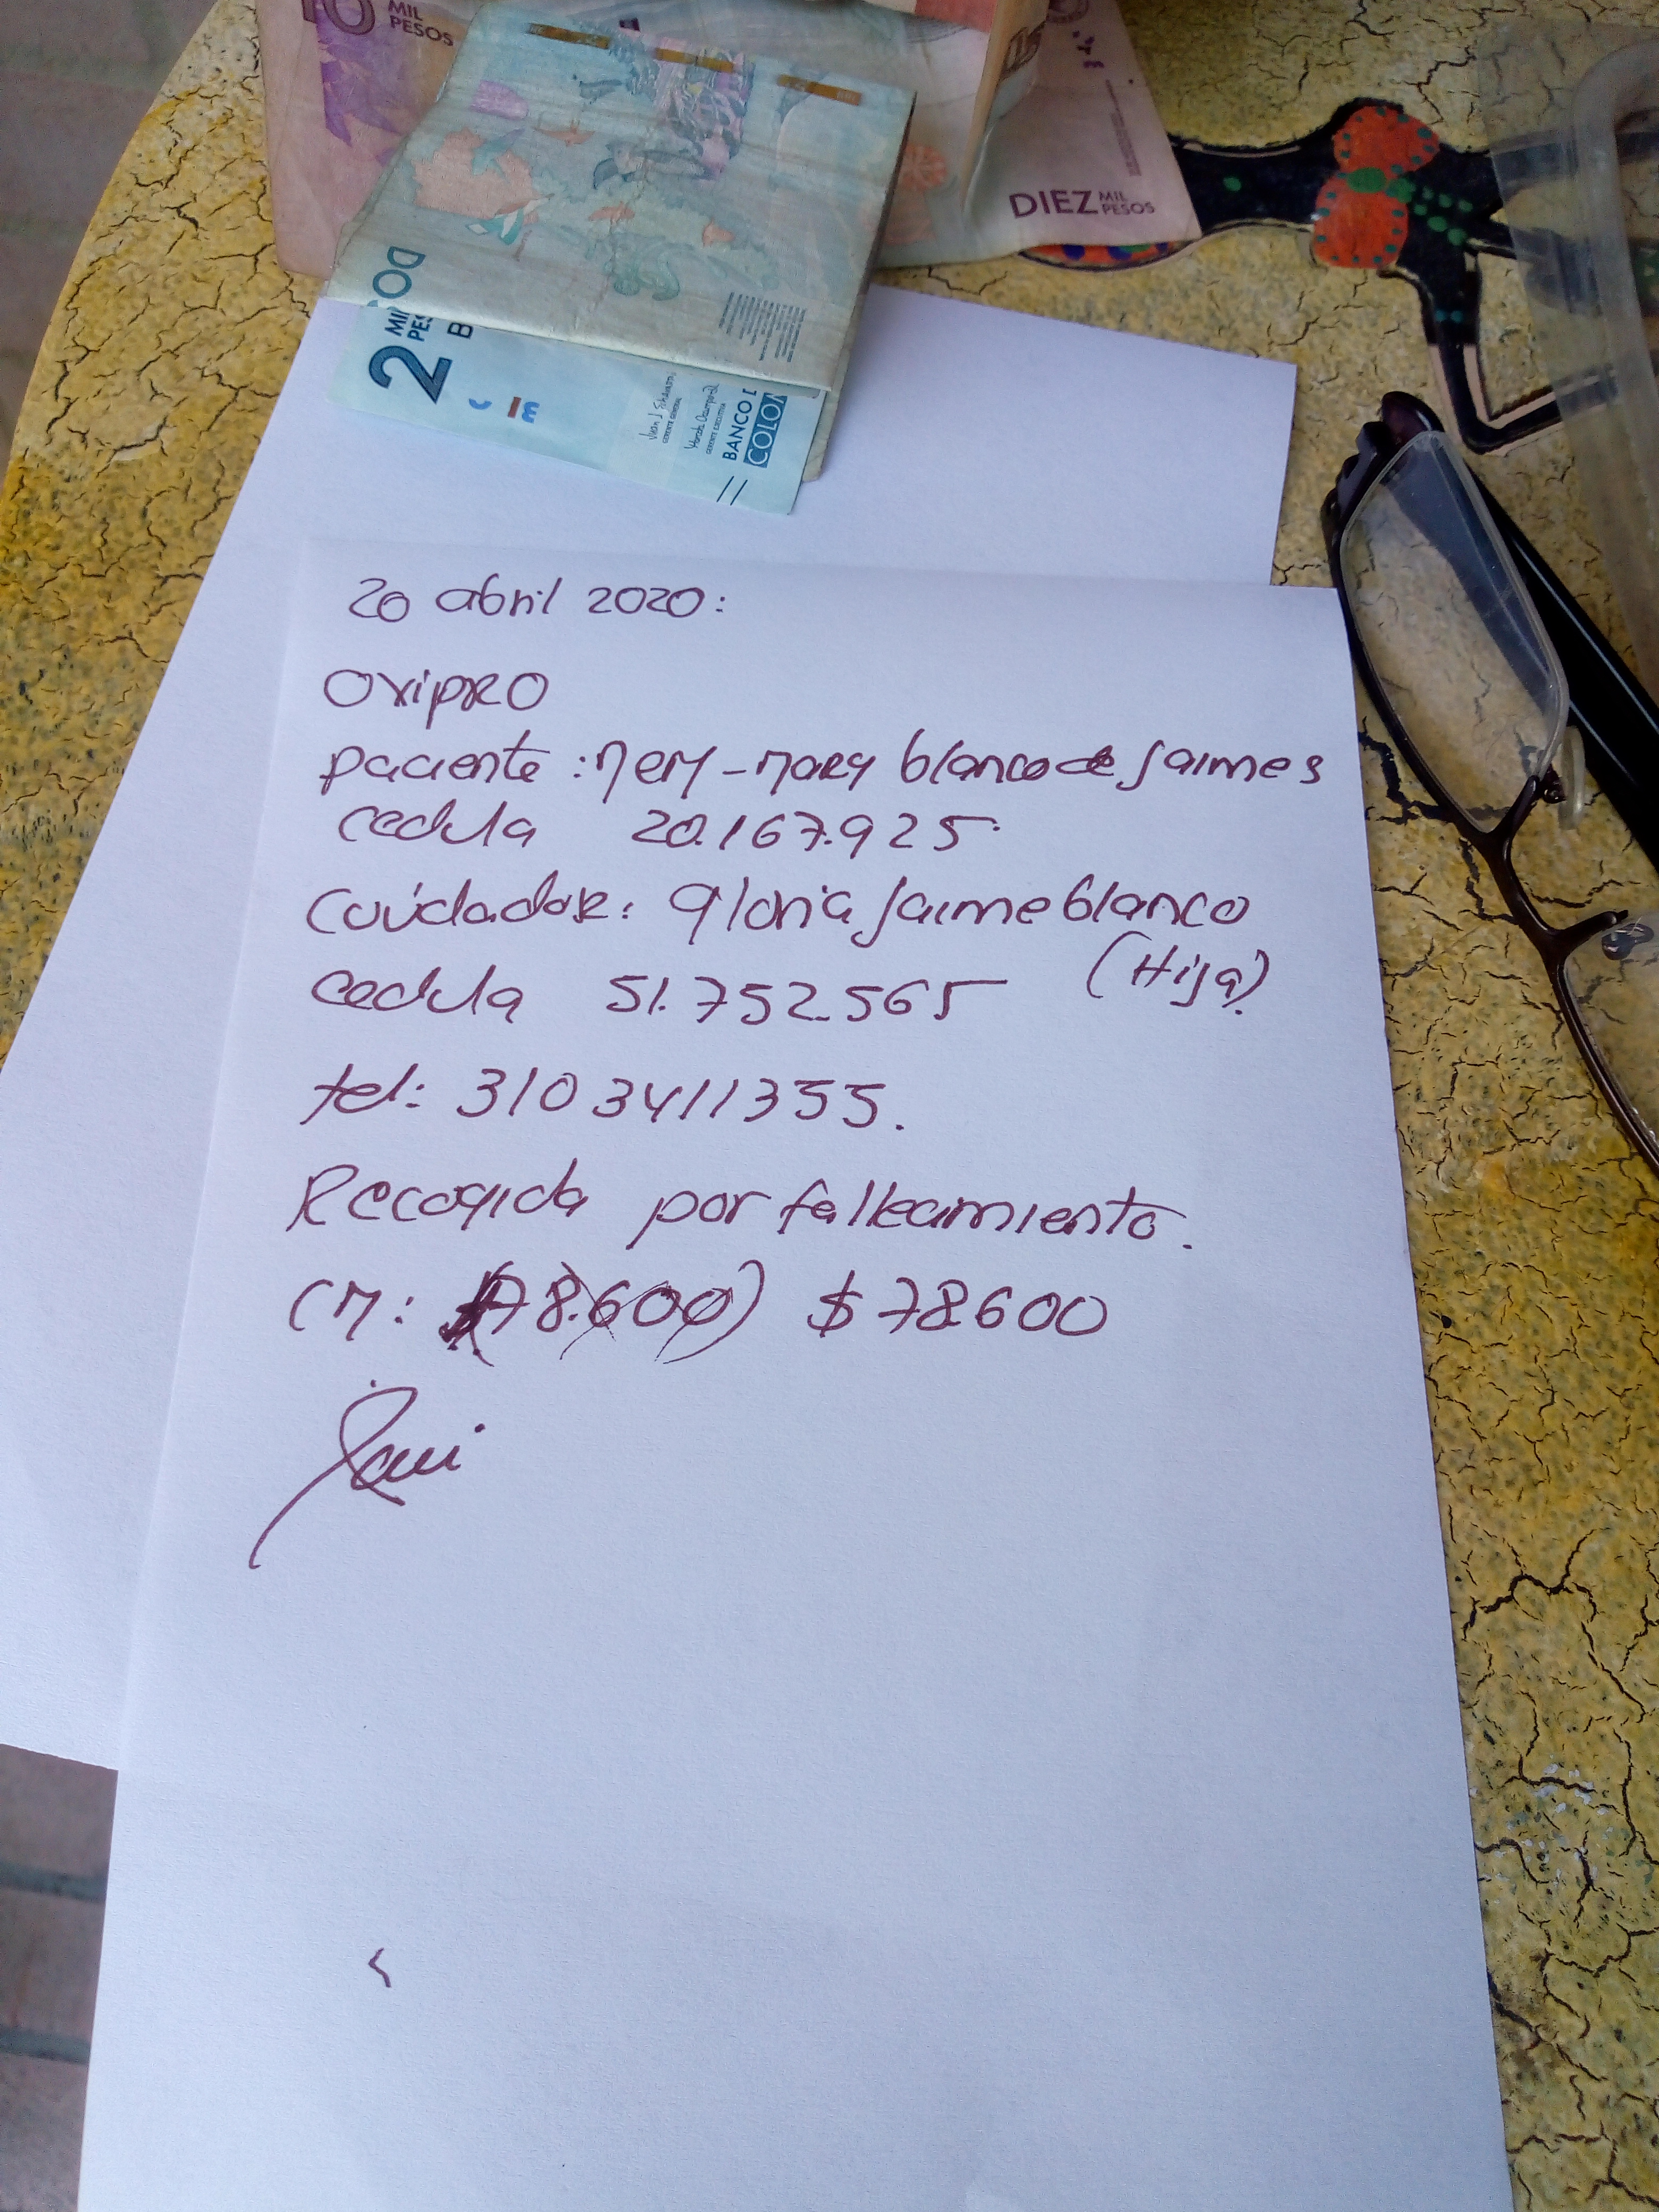 10 MIL
PESOS
DIEZ MIL
PESOS
2 MIL
DOS
BANCO D
COLO
20 abril 2020:
OxipRO
paciente: nery-mary blanco de Jaimes
cedula 20.167.925
Cuidador: gloria Jaime blanco
(Hija)
cedula 51.752.565
tel: 310 3411355.
Recogida por fallecimiento.
CM: $78.600) $78.600